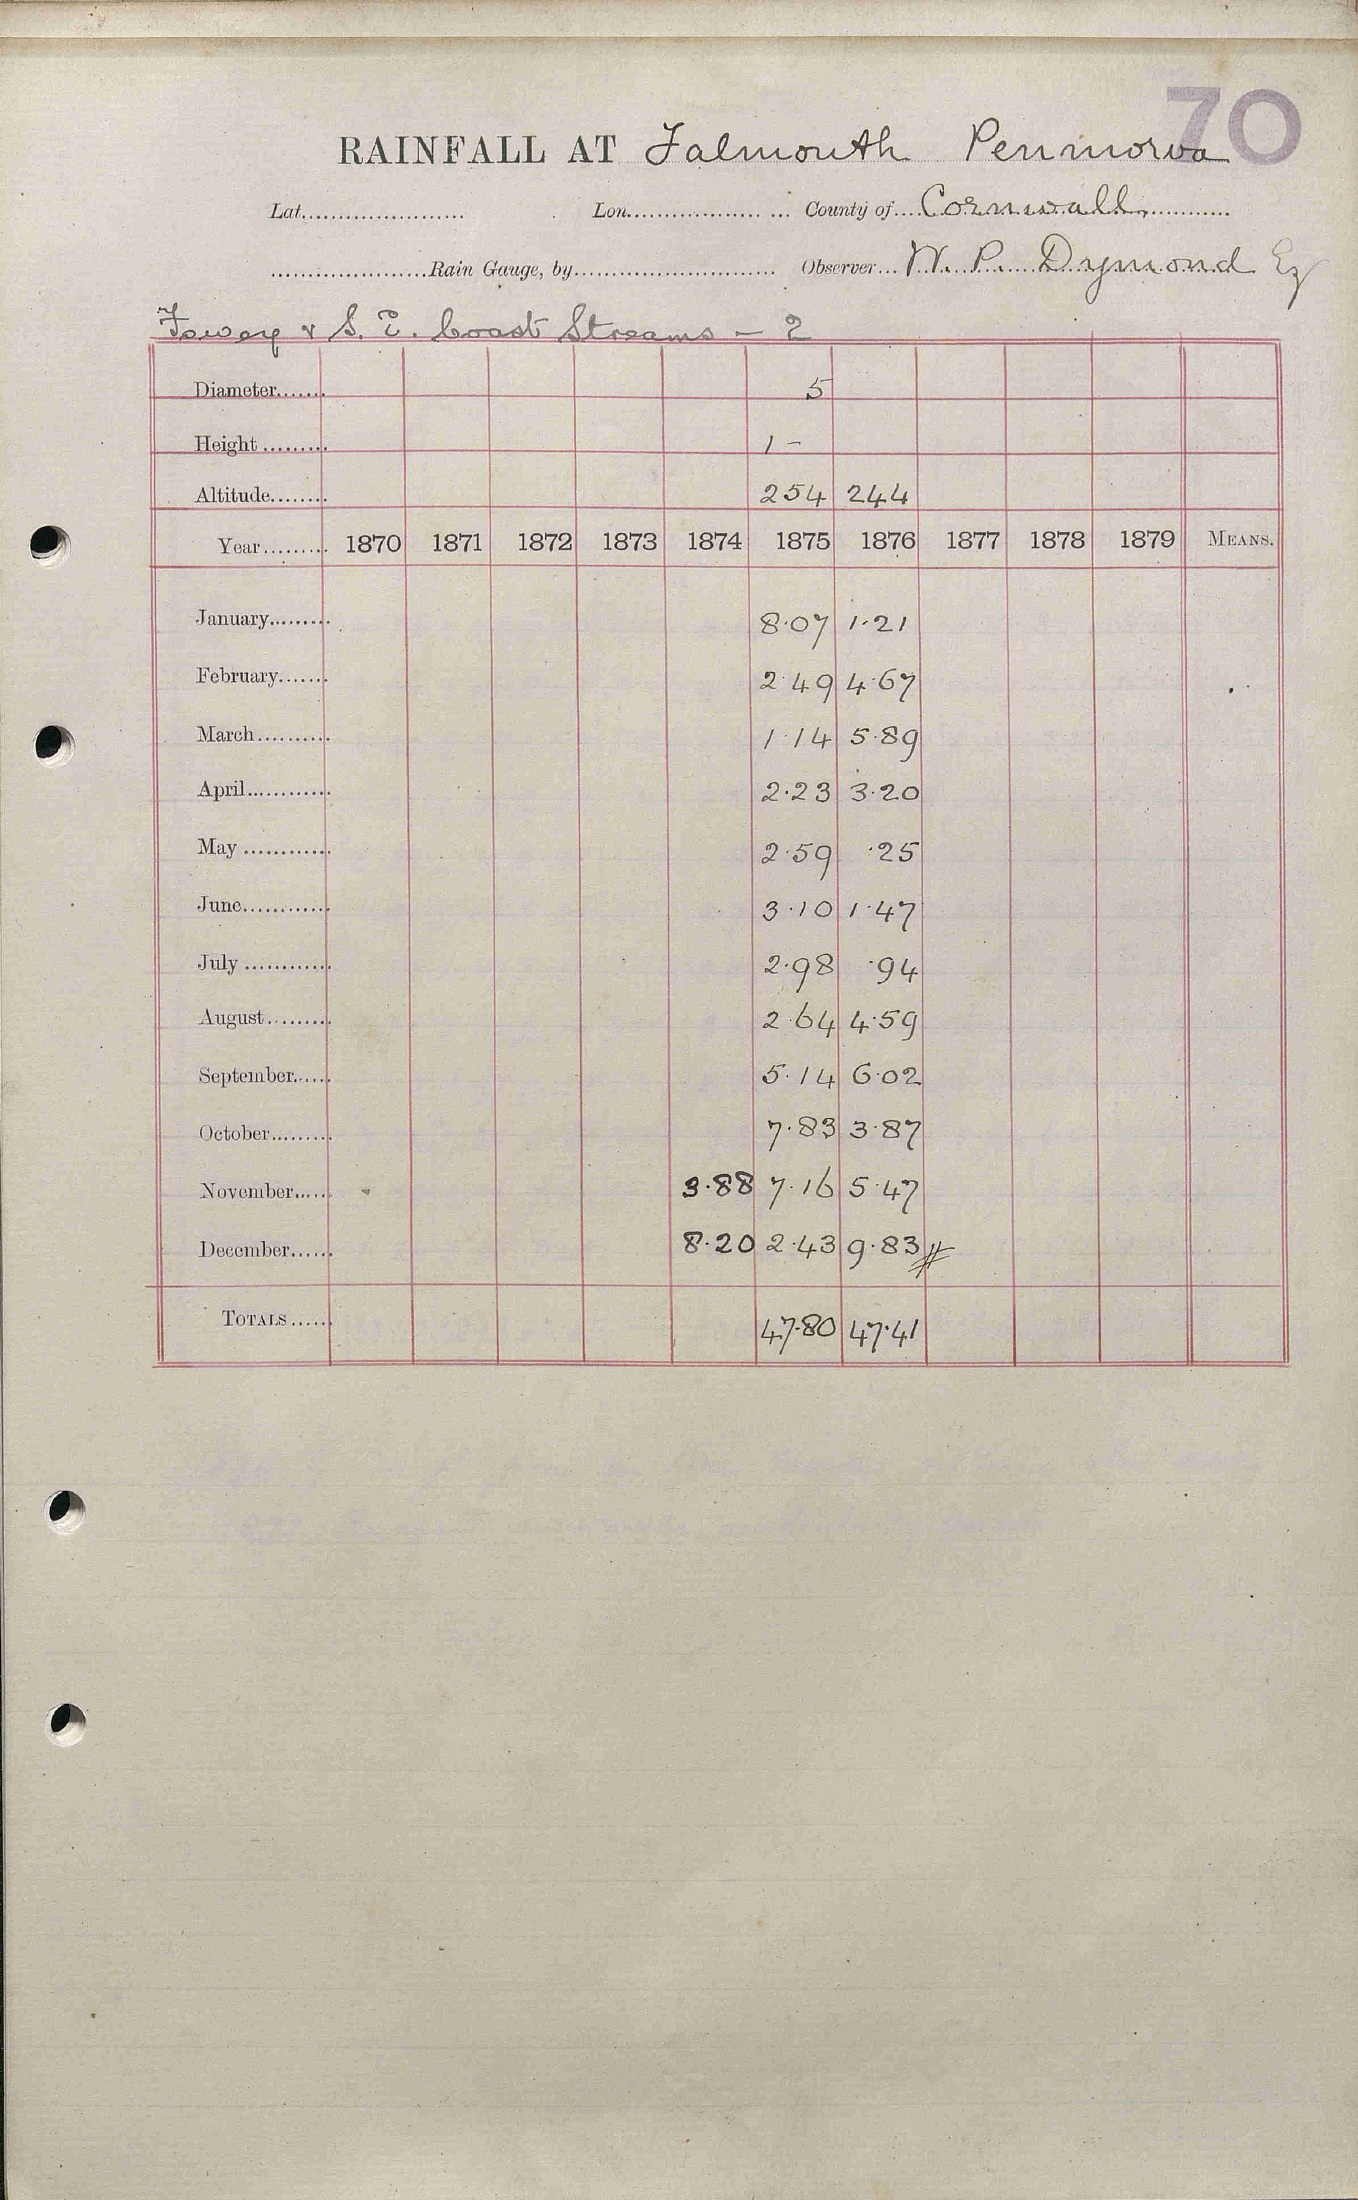 70
RAINFALL AT Falmouth Penmorva
Lat...................... Lon.................. ... County of....Cornwall............
.....................Rain Gauge, by........................... Observer...W. P. Dymond Esq
Fowey & S. E. Coast Streams - 2
Diameter....... 5
Height ......... 1 -
Altitude........ 254 244
Year......... 1870 1871 1872 1873 1874 1875 1876 1877 1878 1879 MEANS.
January......... 8.07 1.21
February....... 2.49 4.67
March.......... 1.14 5.89
April............ 2.23 3.20
May ............ 2.59 .25
June............ 3.10 1.47
July ............ 2.98 .94
August......... 2.64 4.59
September...... 5.14 6.02
October......... 7.83 3.87
November...... 3.88 7.16 5.47
December...... 8.20 2.43 9.83 #
TOTALS...... 47.80 47.41